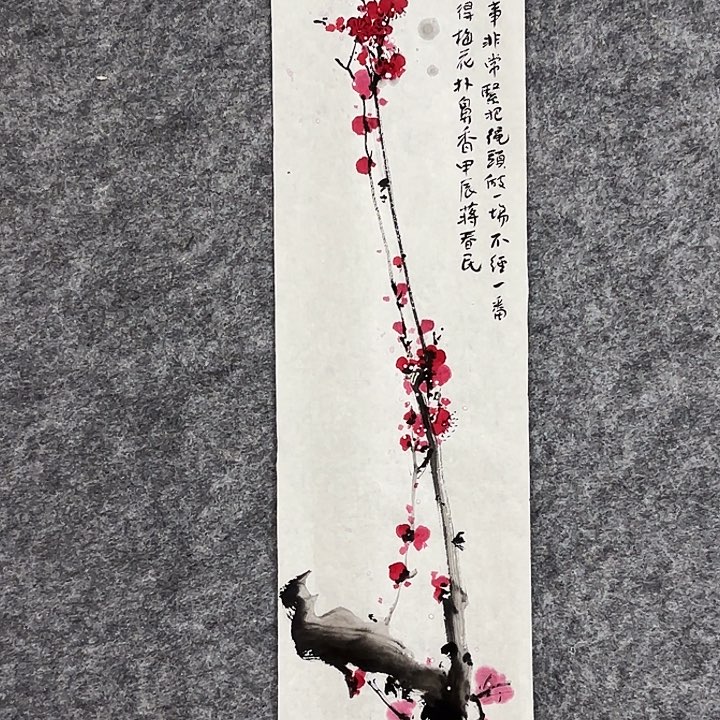 事非常緊把绳頭做一場不經一番
得梅花扑鼻香甲辰蒋春民